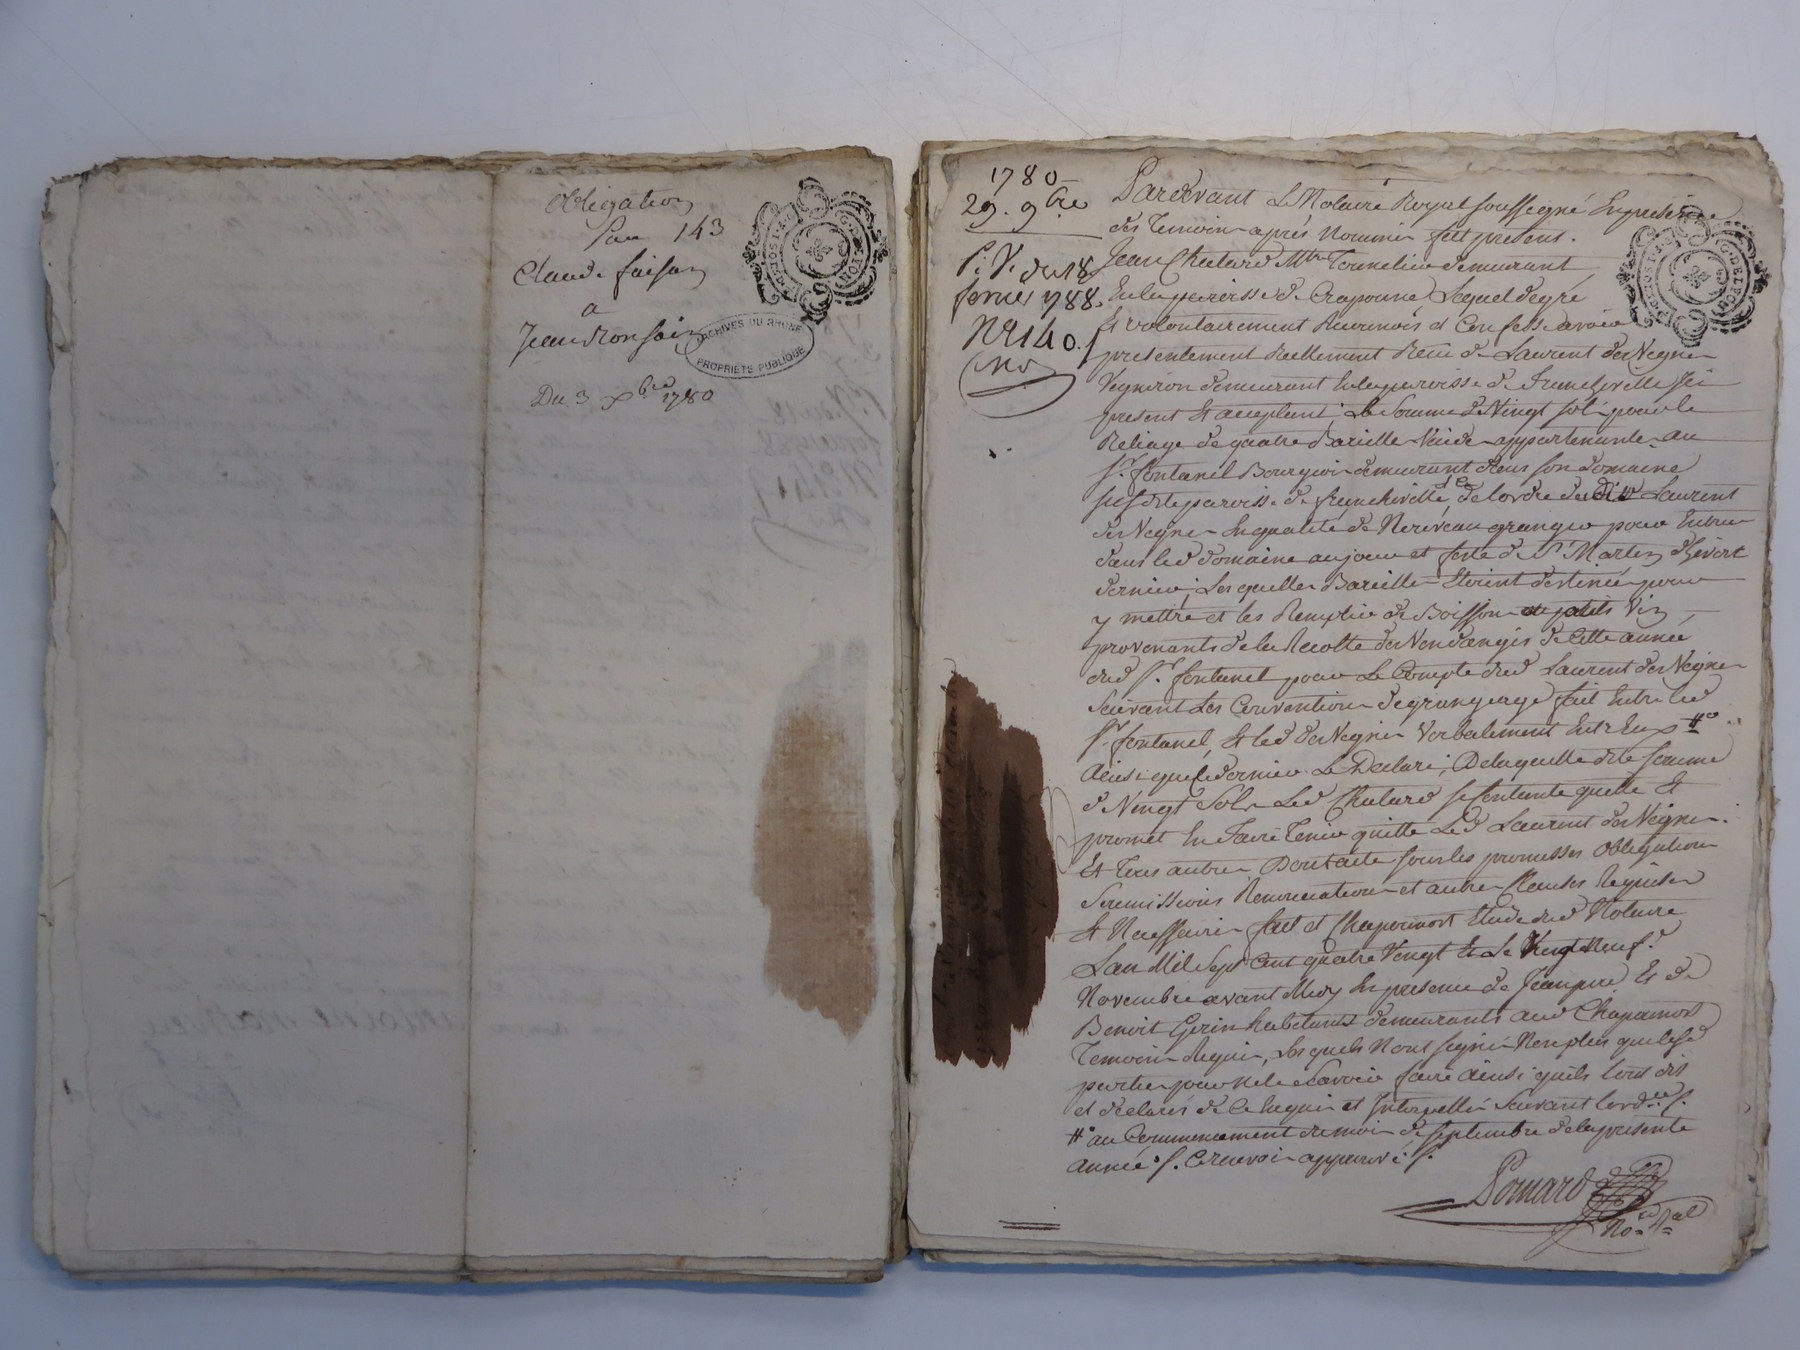 Obligation
Pour 143
Claude faisan
a
Jean Ronfain
Du 3 Xbre 1780
ARCHIVES DU RHONE
PROPRIETE PUBLIQUE
1780
29. 9bre
P. V. du 18
fevrier 1788.
No 140.
Pardevant Le Notaire Royal soussegné En presence
des Temoins après Nommés fut present.
Jean Chatard Mtre Tonnelier demeurant
En la paroisse de Craponne Lequel de gré
Et volontairement Reconnois et Confesse avoir
presentement Reellement Reçu de Laurent des Vegne
Vigneron demeurant En la paroisse de francheville Ici
present Et acceptant, La Somme de Vingt sols pour le
Reliage de quatre Barille Vuide appartenante au
Sr. fontanel Bourgeois demeurant dans son domaine
susdite paroisse de francheville, de lordre dud Laurent
des Vegne En qualité de Nouveau granger pour Entrer
dans led domaine au jour et feste de St. Martin d'hivert
dernier, Lesquelles Barille Etoient destinée pour
y mettre et les Remplir de Boisson ou petits Vin
provenants de la Recolte des Vendanges de Cette année
dud Sr. fontanel pour Le Compte dud Laurent des Vegne
Suivant Les Convention de grangeage fait Entre led
Sr. fontanel, Et led des Vegne Verbalement Entr'Eux #
Ainsi que Ce dernier Le Declare, De laquelle dite somme
de Vingt Sols Led Chatard se Contente quitte Et
promet En faire Tenir quitte Led Laurent des Vegne.
Et Tous autres Dont acte sous les promesses obligation
Soumissions Renonciation et autre Clauses Requise
Et Necessaire fait et Chaponnost Etude dud Notaire
Lan Mil Sept Cent quatre Vingt Et Le Vingt Neuf.
Novembre avant Midy En presence de Jean pre Et de
Benoit Gerin habitants demeurants aud Chaponost
Temoins Requis, Lesquels N'ont segné Non plus que lesd
parties pour Ne le Savoir faire Ainsi quils l'ont dis
et declarés de Ce Enquis et Interpellés Suivant l'ordce /.
# au Commencement du mois de septembre de la presente
année /. Ce renvoi approuvé /.
Ponard
Nore Ral